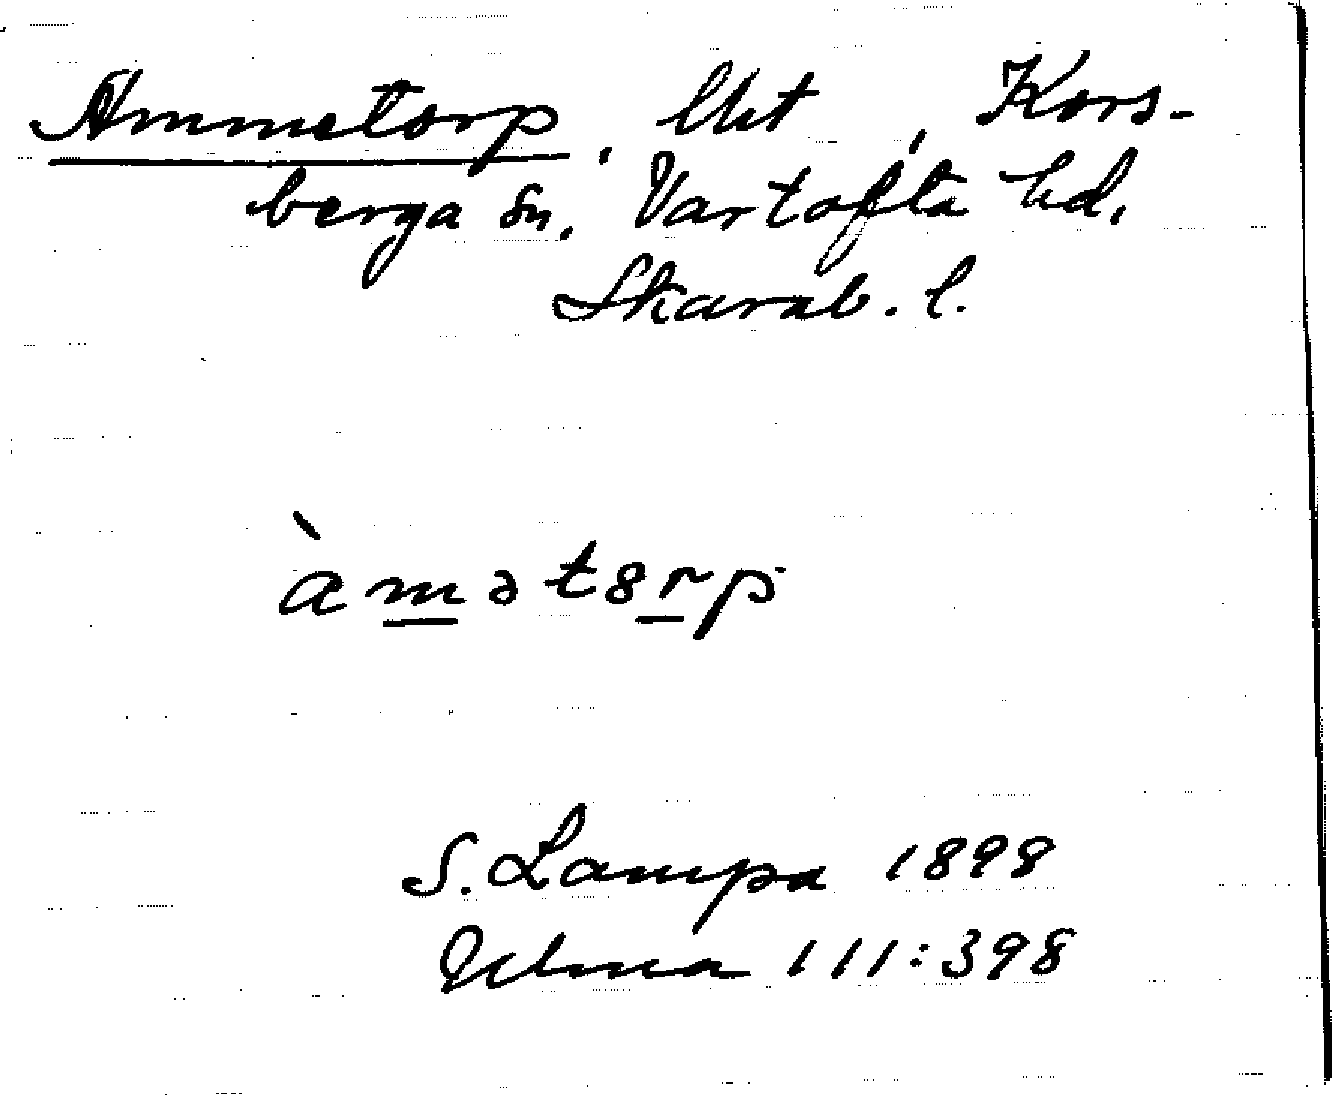 Ammetorp, Ukt, Kors-
berga sn. Vartofta hd,
Skarab. l.
àmətɵrp
S. Lampa 1898
Ulma 111:398